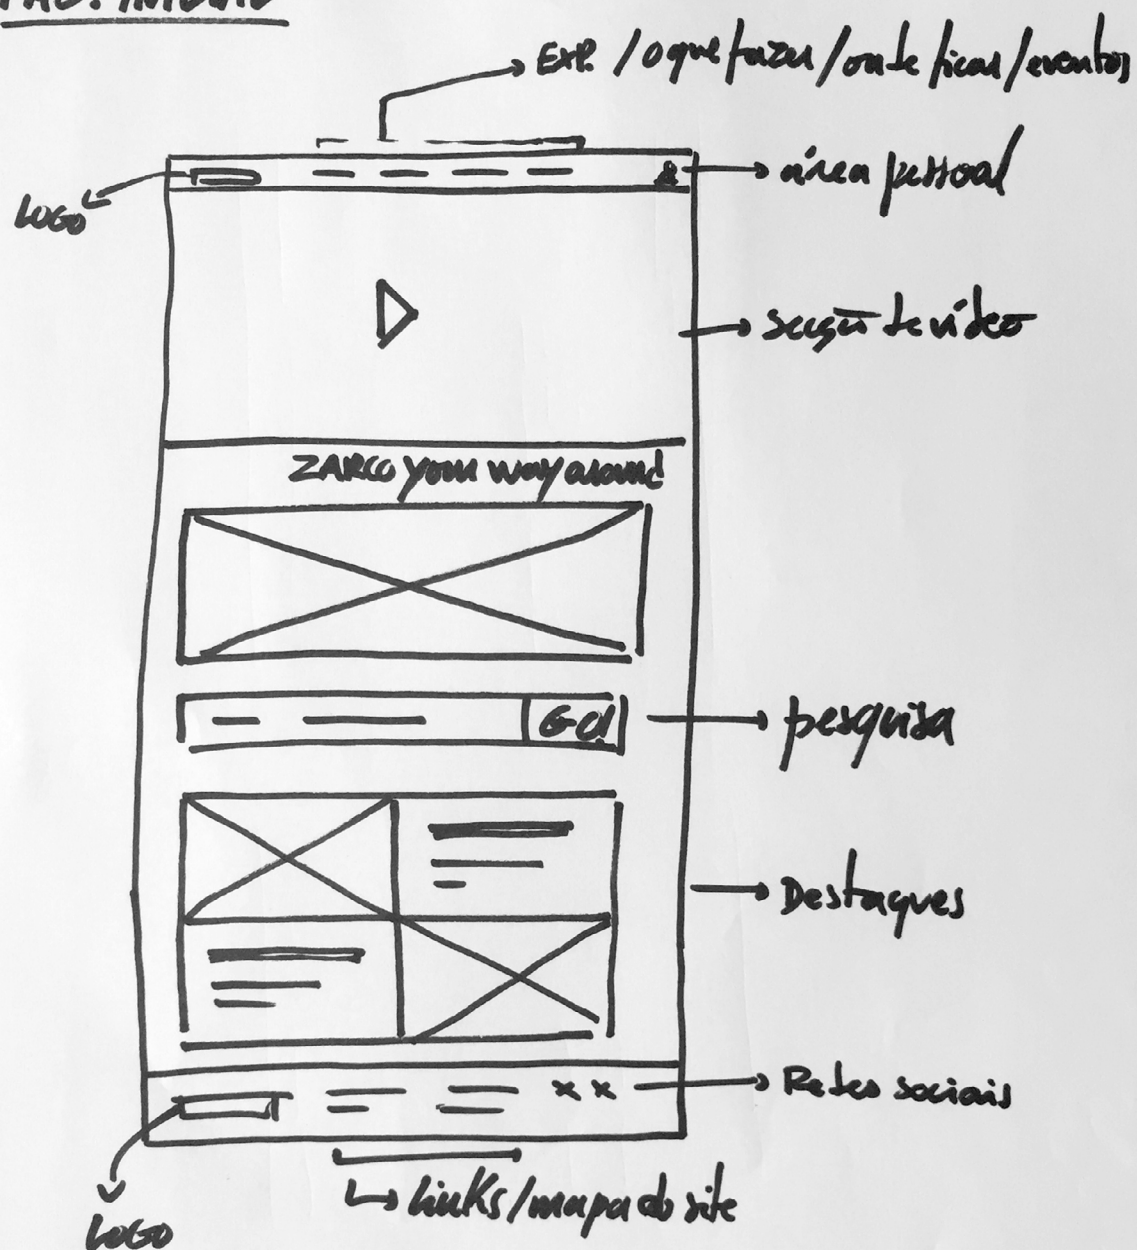 EXP. / o que fazer / onte ficar / eventos
área pessoal
LOGO
secção de vídeo
ZARCO your way around
GO!
pesquisa
Destaques
Redes sociais
Links/mapa do site
LOGO